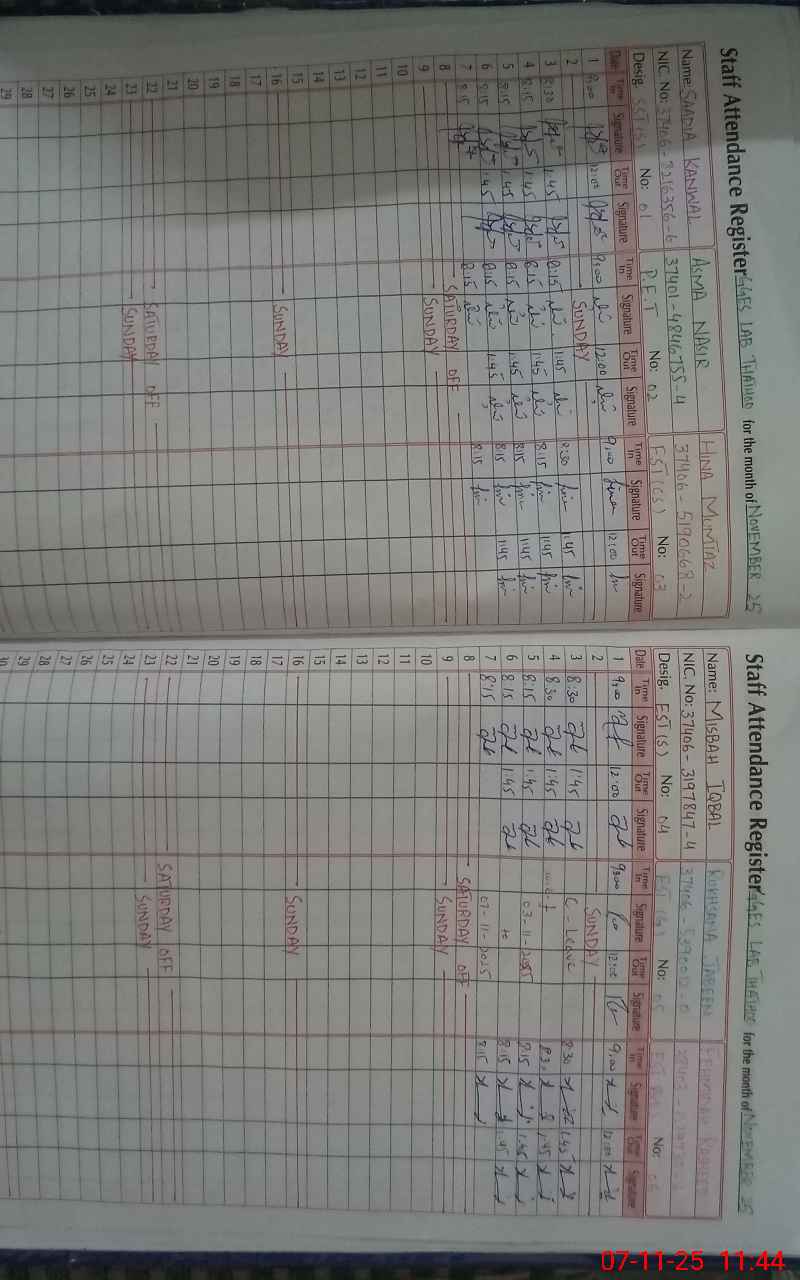 Staff Attendance Register GGES LAB THATHOO for the month of NOVEMBER 25
Name: SAADIA KANWAL ASMA NASIR HINA MUMTAZ
NIC. No: 37406-8216356-6 37401-4846755-4 37406-5190668-2
Desig. SST(S) No: 01 P.E.T No: 02 EST(GS) No: 03
Date Time In Signature Time Out Signature Time In Signature Time Out Signature Time In Signature Time Out Signature
1 9:00 12:00 9:00 12:00 9:00 12:00
2 SUNDAY
3 8:30 1:45 8:15 1:45 8:30 1:45
4 8:15 1:45 8:15 1:45 8:15 1:45
5 8:15 1:45 8:15 1:45 8:15 1:45
6 8:15 1:45 8:15 1:45 8:15 1:45
7 8:15 8:15 8:15
8 SATURDAY OFF
9 SUNDAY
10
11
12
13
14
15
16 SUNDAY
17
18
19
20
21
22 SATURDAY OFF
23 SUNDAY
24
25
26
27
28
29
Staff Attendance Register GGES LAB THATHOO for the month of NOVEMBER 25
Name: MISBAH IQBAL RUKHSANA JABEEN
NIC. No: 37406-3197847-4
Desig. EST(S) No: 04 No: 05 No: 06
Date Time In Signature Time Out Signature Time In Signature Time Out Signature Time In Signature Time Out Signature
1 9:00 12:00 9:00 12:00 9:00 12:00
2 SUNDAY
3 8:30 1:45 C-Leave 8:30 1:45
4 8:30 1:45 w.e.f 8:30 1:45
5 8:15 1:45 03-11-2025 8:15 1:45
6 8:15 1:45 to 8:15 1:45
7 8:15 07-11-2025 8:15
8 SATURDAY OFF
9 SUNDAY
10
11
12
13
14
15
16 SUNDAY
17
18
19
20
21
22 SATURDAY OFF
23 SUNDAY
24
25
26
27
28
29
30
07-11-25 11:44